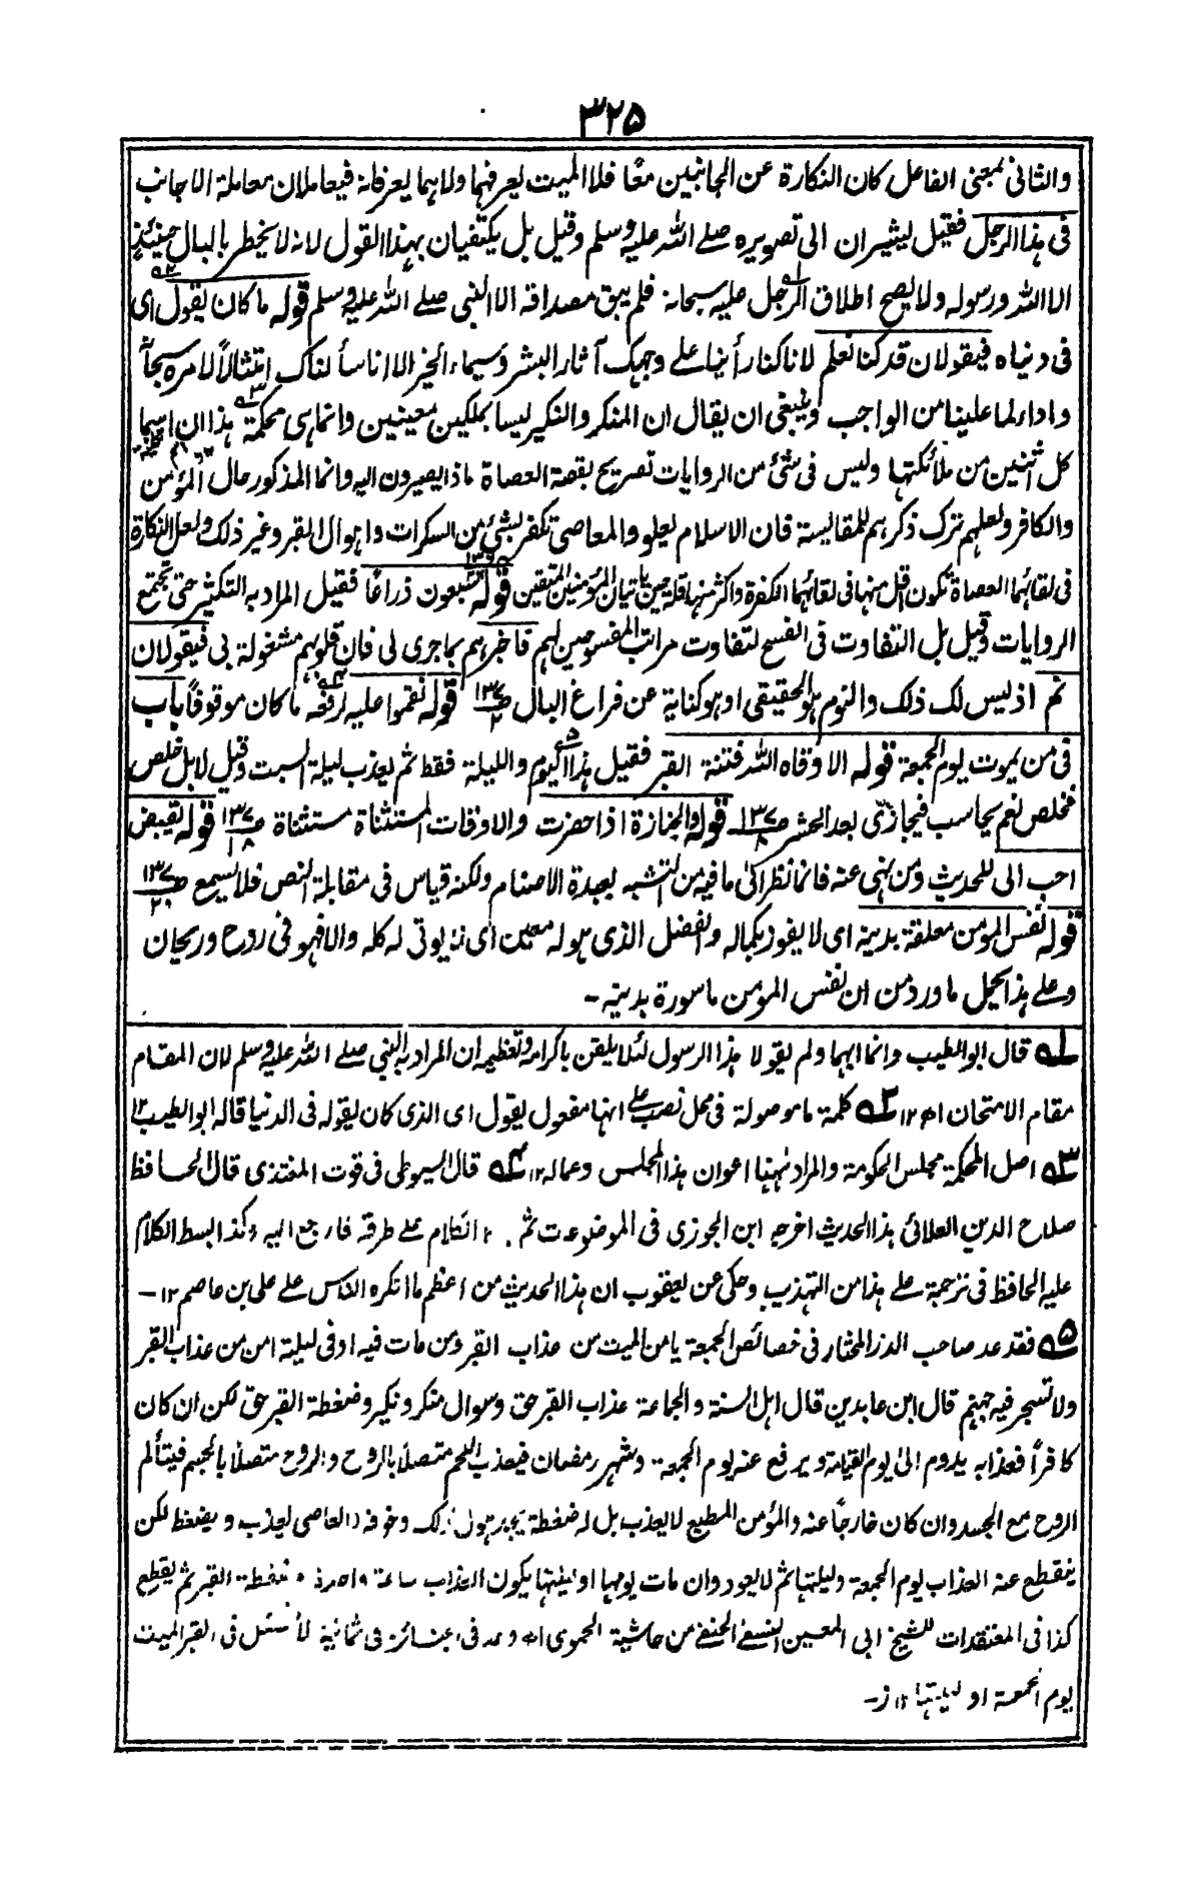 ٣٢٥
والثانى بمعنى الفاعل كان النكارة عن الجانبين معًا فلا الميت يعرفهما ولا هما يعرفانه فيعاملان معاملة الاجانب
فى هذا الرجل فقيل يشيران الى تصويره صلے الله عليه وسلم وقيل بل يكتفيان بهذا القول لانه لا يخطر بالبال حينئذٍ
الا الله ورسوله ولا يصح اطلاق الرجل عليه سبحانه فلم يبق مصداقه الا النبى صلے الله عليه وسلم قوله ما كان يقول اى
فى دنياه فيقولان قد كنا نعلم لانا كنا رأينا على وجهك آثار البشر وسيماء الخير الا انا سألناك امتثالًا لامره سبحانه
واداء لما علينا من الواجب وينبغى ان يقال ان المنكر والنكير ليسا بملكين معينين وانما هى محكمة هذان اسما
كل اثنين من ملائكتها وليس فى شئ من الروايات تصريح بقصة العصاة ماذا يصيرون اليه وانما المذكور حال المؤمن
والكافر ولعلهم ترك ذكرهم للمقايسة فان الاسلام يعلو والمعاصى تكفر بشئ من السكرات واهوال القبر وغير ذلك ولعل النكارة
فى لقائهما العصاة تكون اقل منها فى لقائهما الكفرة واكثر منها قلة حين ياتيان المؤمنين المتقين قوله سبعون ذراعًا فقيل المراد به التكثير حتى تجتمع
الروايات وقيل بل التفاوت فى الفسح لتفاوت مراتب المفسوحين لهم فاخبرهم بما جرى لى فان قلوبهم مشغولة بى فيقولان
نم اذ ليس لك ذلك والنوم هو الحقيقى او هو كناية عن فراغ البال قوله نقموا عليه لرفعه ما كان موقوفًا باب
فى من يموت يوم الجمعة قوله الا وقاه الله فتنة القبر فقيل هذا اليوم والليلة فقط ثم يعذب ليلة السبت وقيل لا بل خلص
مخلص نعم يحاسب فيجازى بعد الحشر قوله والجنازة اذا حضرت والاوقات المستثناة مستثناة قوله تقبض
احب الى للحديث ومن نهى عنه فانما نظر الى ما فيه من التشبه بعبدة الاصنام ولكنه قياس فى مقابلة النص فلا يسمع
قوله نفس المؤمن معلقة بدينه اى لا يفوز بكماله والفضل الذى هو له معين اى لا يوتى له كله والا فهو فى روح وريحان
وعلے هذا يحمل ما ورد من ان نفس المؤمن ماسورة بدينه۔
١ قال ابو الطيب وانما ابهما ولم يقولا هذا الرسول لئلا يلقن باكرامه وتعظيم ان المراد به النبى صلے الله عليه وسلم لان المقام
مقام الامتحان اھ ١٢ ٢ كلمة ما موصولة فى محل نصب على انها مفعول يقول اى الذى كان يقوله فى الدنيا قاله ابو الطيب ١٢
٣ اصل المحكمة مجلس الحكومة والمراد ههنا اعوان هذا المجلس وعماله ١٢ ٤ قال السيوطى فى قوت المغتذى قال الحافظ
صلاح الدين العلائى هذا الحديث اخرجه ابن الجوزى فى الموضوعات ثم الكلام على طرقه فارجع اليه وكذا بسط الكلام
عليه الحافظ فى ترجمة على هذا من التهذيب وحكى عن يعقوب ان هذا الحديث من اعظم ما انكره الناس على على بن عاصم ١٢۔
٥ فقد عد صاحب الدر المختار فى خصائص الجمعة يامن الميت من عذاب القبر ومن مات فيه او فى ليلته امن من عذاب القبر
ولا تسجر فيه جهنم قال ابن عابدين قال اهل السنة والجماعة عذاب القبر حق وسوال منكر ونكير وضغطة القبر حق لكن ان كان
كافرًا فعذابه يدوم الى يوم القيامة ويرفع عنه يوم الجمعة وشهر رمضان فيعذب اللحم متصلًا بالروح والروح متصلًا بالجسم فيتألم
الروح مع الجسد وان كان خارجًا عنه والمؤمن المطيع لا يعذب بل له ضغطة يجد هول ذلك وخوفه والعاصى يعذب ويضغط لكن
ينقطع عنه العذاب يوم الجمعة وليلتها ثم لا يعود وان مات يومها او ليلتها يكون العذاب ساعة واحدة وضغطة القبر ثم يقطع
كذا فى المعتقدات للشيخ ابى المعين النسفى الحنفى من حاشية الحموى اھ وعد فى الجنائز فى ثمانية لا تسئل فى القبر الميت
يوم الجمعة او ليلتها ١٢ ز۔